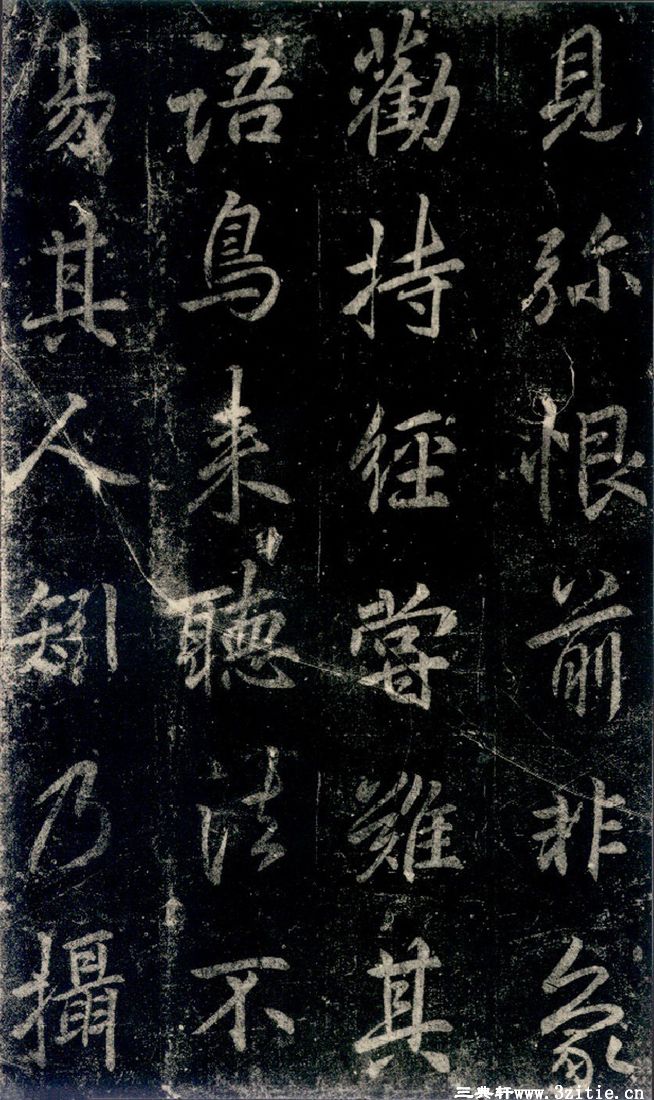 見弥恨前非象
勸持經嘗難其
語鳥来聽法不
易其人矧乃攝
三典轩www.3zitie.cn